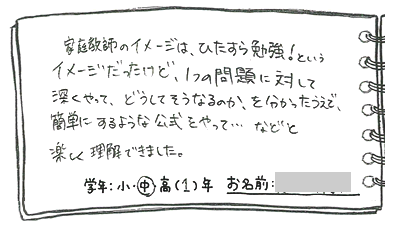 家庭教師のイメージは、ひたすら勉強！という
イメージだったけど、1つの問題に対して
深くやって、どうしてそうなるのか、を分かったうえで、
簡単にするような公式をやって… などなど
楽しく理解できました。
学年：小・中 高（1）年 お名前：